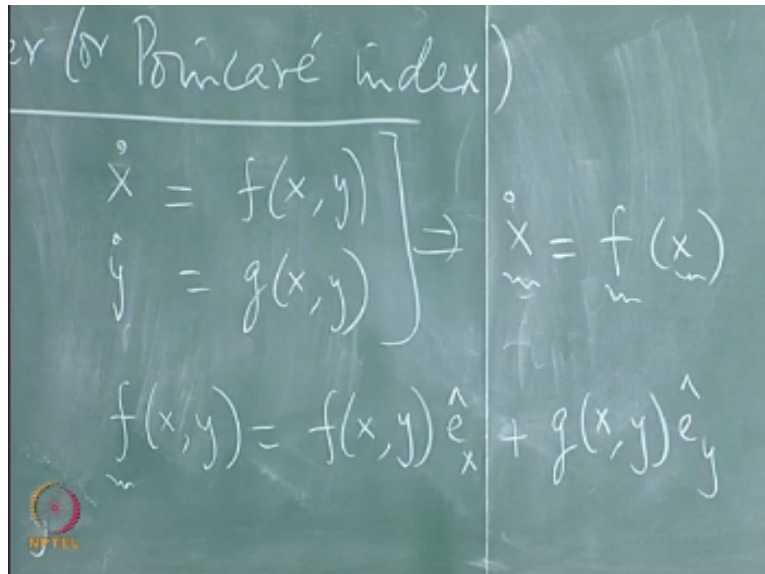 er (or Poincaré index)
ẋ = f(x, y)
ẏ = g(x, y) ] ⇒ ẋ = f(x)
f(x, y) = f(x, y) ê_x + g(x, y) ê_y
NPTEL